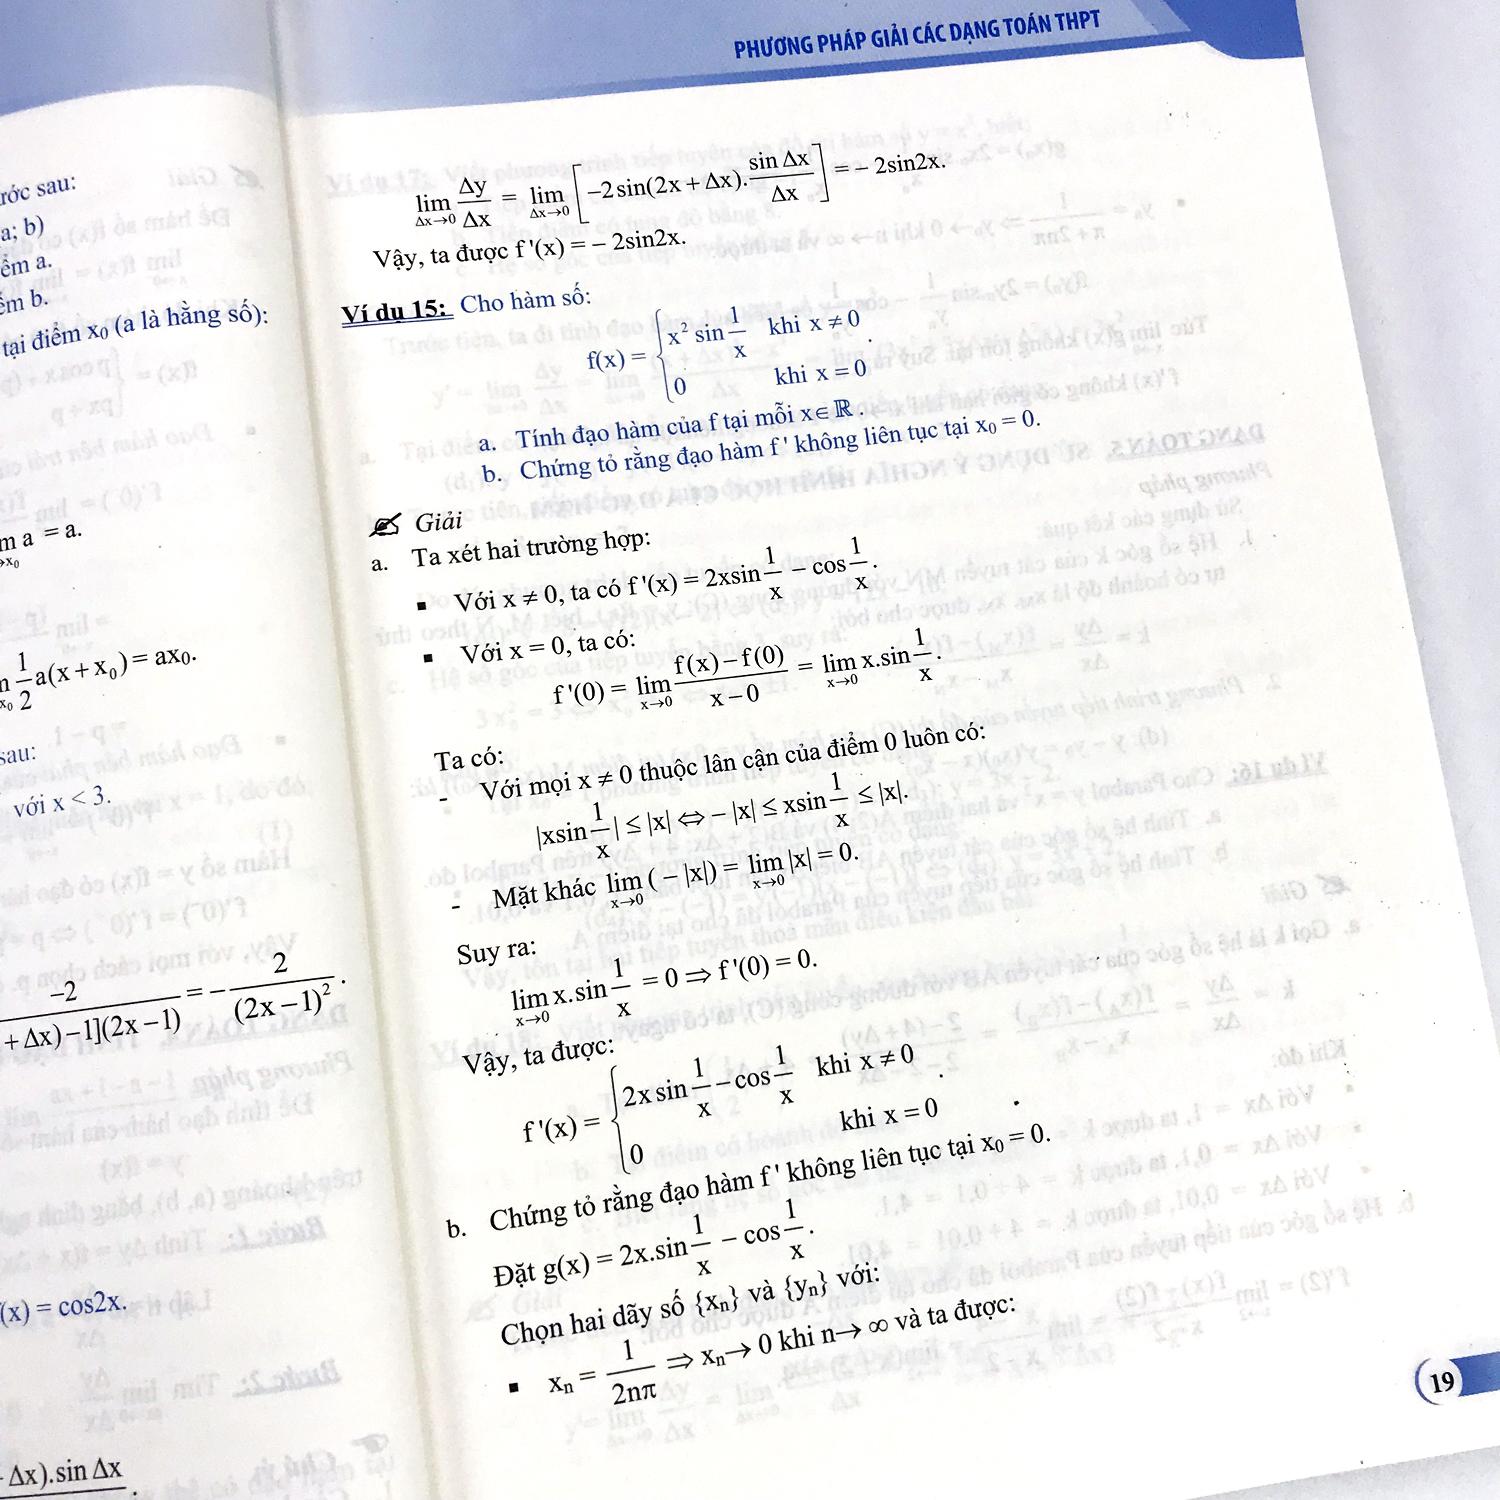 PHƯƠNG PHÁP GIẢI CÁC DẠNG TOÁN THPT
ước sau:
a; b)
ểm a.
ểm b.
tại điểm x₀ (a là hằng số):
a = a.
1/2 a(x + x₀) = ax₀.
sau:
với x < 3.
-2/(+ Δx) – 1](2x – 1) = – 2/(2x – 1)².
(x) = cos2x.
Δx).sin Δx
lim Δx→0 Δy/Δx = lim Δx→0 [–2sin(2x + Δx). sin Δx/Δx] = – 2sin2x.
Vậy, ta được f '(x) = – 2sin2x.
Ví dụ 15: Cho hàm số:
f(x) = { x² sin 1/x khi x ≠ 0
0 khi x = 0 .
a. Tính đạo hàm của f tại mỗi x∈ℝ .
b. Chứng tỏ rằng đạo hàm f ' không liên tục tại x₀ = 0.
Giải
a. Ta xét hai trường hợp:
▪ Với x ≠ 0, ta có f '(x) = 2xsin 1/x – cos 1/x.
▪ Với x = 0, ta có:
f '(0) = lim x→0 f(x) – f(0)/x – 0 = lim x→0 x.sin 1/x.
Ta có:
- Với mọi x ≠ 0 thuộc lân cận của điểm 0 luôn có:
|xsin 1/x| ≤ |x| ⇔ – |x| ≤ xsin 1/x ≤ |x|.
- Mặt khác lim x→0 ( – |x|) = lim x→0 |x| = 0.
Suy ra:
lim x→0 x.sin 1/x = 0 ⇒ f '(0) = 0.
Vậy, ta được:
f '(x) = { 2x sin 1/x – cos 1/x khi x ≠ 0
0 khi x = 0 .
b. Chứng tỏ rằng đạo hàm f ' không liên tục tại x₀ = 0.
Đặt g(x) = 2x.sin 1/x – cos 1/x.
Chọn hai dãy số {xₙ} và {yₙ} với:
▪ xₙ = 1/2nπ ⇒ xₙ→ 0 khi n→ ∞ và ta được:
19